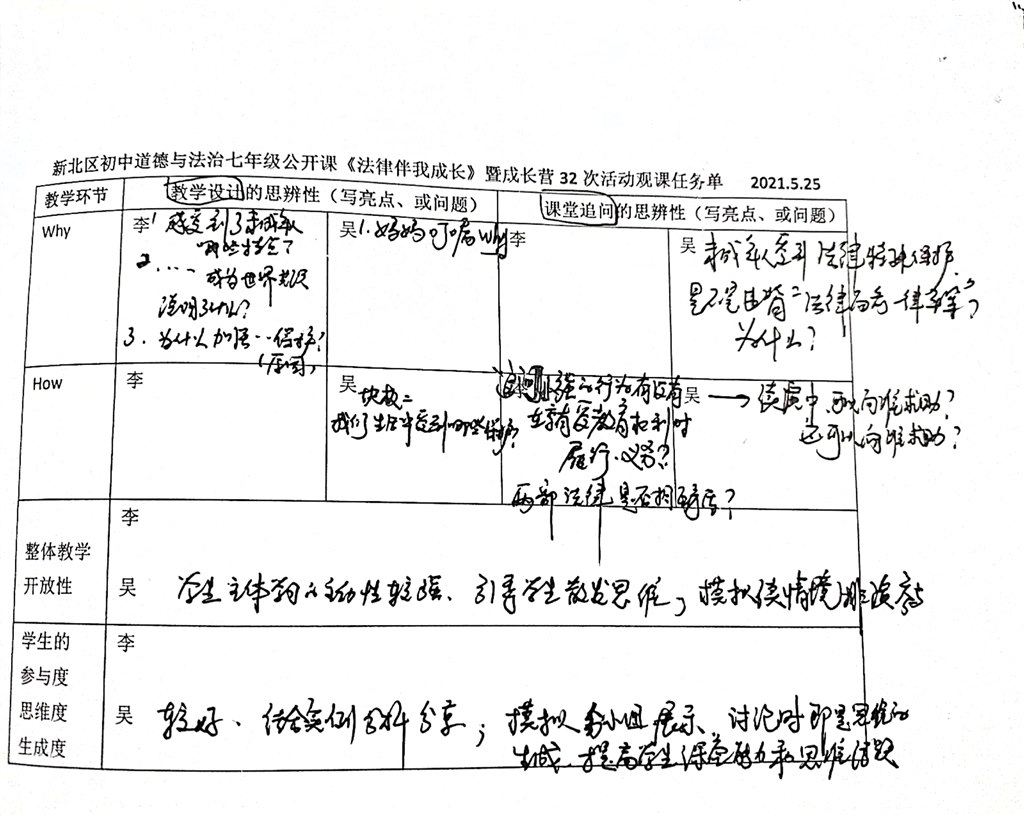 新北区初中道德与法治七年级公开课《法律伴我成长》暨成长营 32 次活动观课任务单 2021.5.25
教学环节
教学设计的思辨性（写亮点、或问题）
课堂追问的思辨性（写亮点、或问题）
Why
李 1 感受到了未成年
哪些特点？
2. …… 成为世界共识
说明了什么？
3. 为什么加强…保护？
（原因）
吴 1. 妈妈叮嘱 why
李
吴 未成年人受到法律特殊保护
是不是违背“法律面前一律平等”？
为什么？
How
李
吴 块板二
我们生活中受到哪些保护？
追问 小强的行为有没有
在享有受教育权利时
履行义务？
两部法律是否相矛盾？
吴 → 情境中 可以向谁求助？
还可以向谁求助？
整体教学
开放性
李
吴 学生主体学习的主动性较强、引导学生散发思维，模拟
学生的
参与度
思维度
生成度
李
吴 较好、结合实例分析分享；模拟 小组展示、讨论时即是思维的
生成、提高学生课堂 和思维活跃